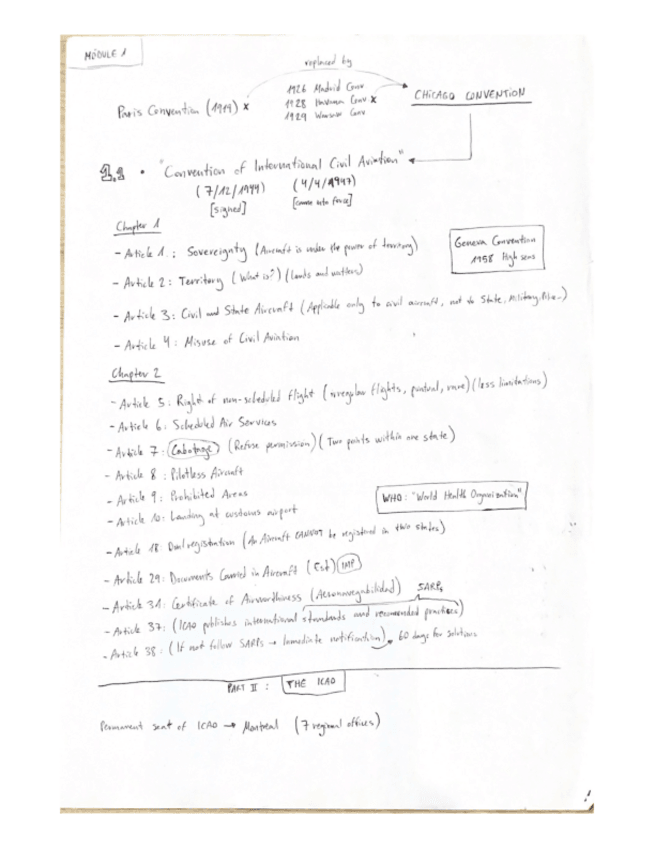 MÓDULE 1
replaced by
Paris Convention (1919) x
1926 Madrid Conv
1928 Havana Conv x
1929 Warsaw Conv
CHICAGO CONVENTION
1.1 • "Convention of International Civil Aviation"
(7/12/1944) (4/4/1947)
[signed] [came into force]
Chapter 1
- Article 1.: Sovereignty (Aircraft is under the power of territory)
Geneva Convention
1958 High seas
- Article 2: Territory (What is?) (Lands and waters)
- Article 3: Civil and State Aircraft (Applicable only to civil aircraft, not to State, Military,
- Article 4: Misuse of Civil Aviation
Chapter 2
- Article 5: Right of non-scheduled flight (irregular flights, puntual, rare) (less limitations)
- Article 6: Scheduled Air Services
- Article 7: Cabotage (Refuse permission) (Two points within one state)
- Article 8: Pilotless Aircraft
- Article 9: Prohibited Areas
WHO: "World Health Organization"
- Article 10: Landing at customs airport
- Article 18: Dual registration (An Aircraft CANNOT be registered in two states)
- Article 29: Documents Carried in Aircraft (Est) IMP
- Article 31: Certificate of Airworthiness (Aeronavegabilidad)
SARPs
- Article 37: (ICAO publishes international standards and recomended practices)
- Article 38: (If not follow SARPs → Inmediate notification) 60 days for solutions
PART II: THE ICAO
Permanent seat of ICAO → Montreal (7 regional offices)